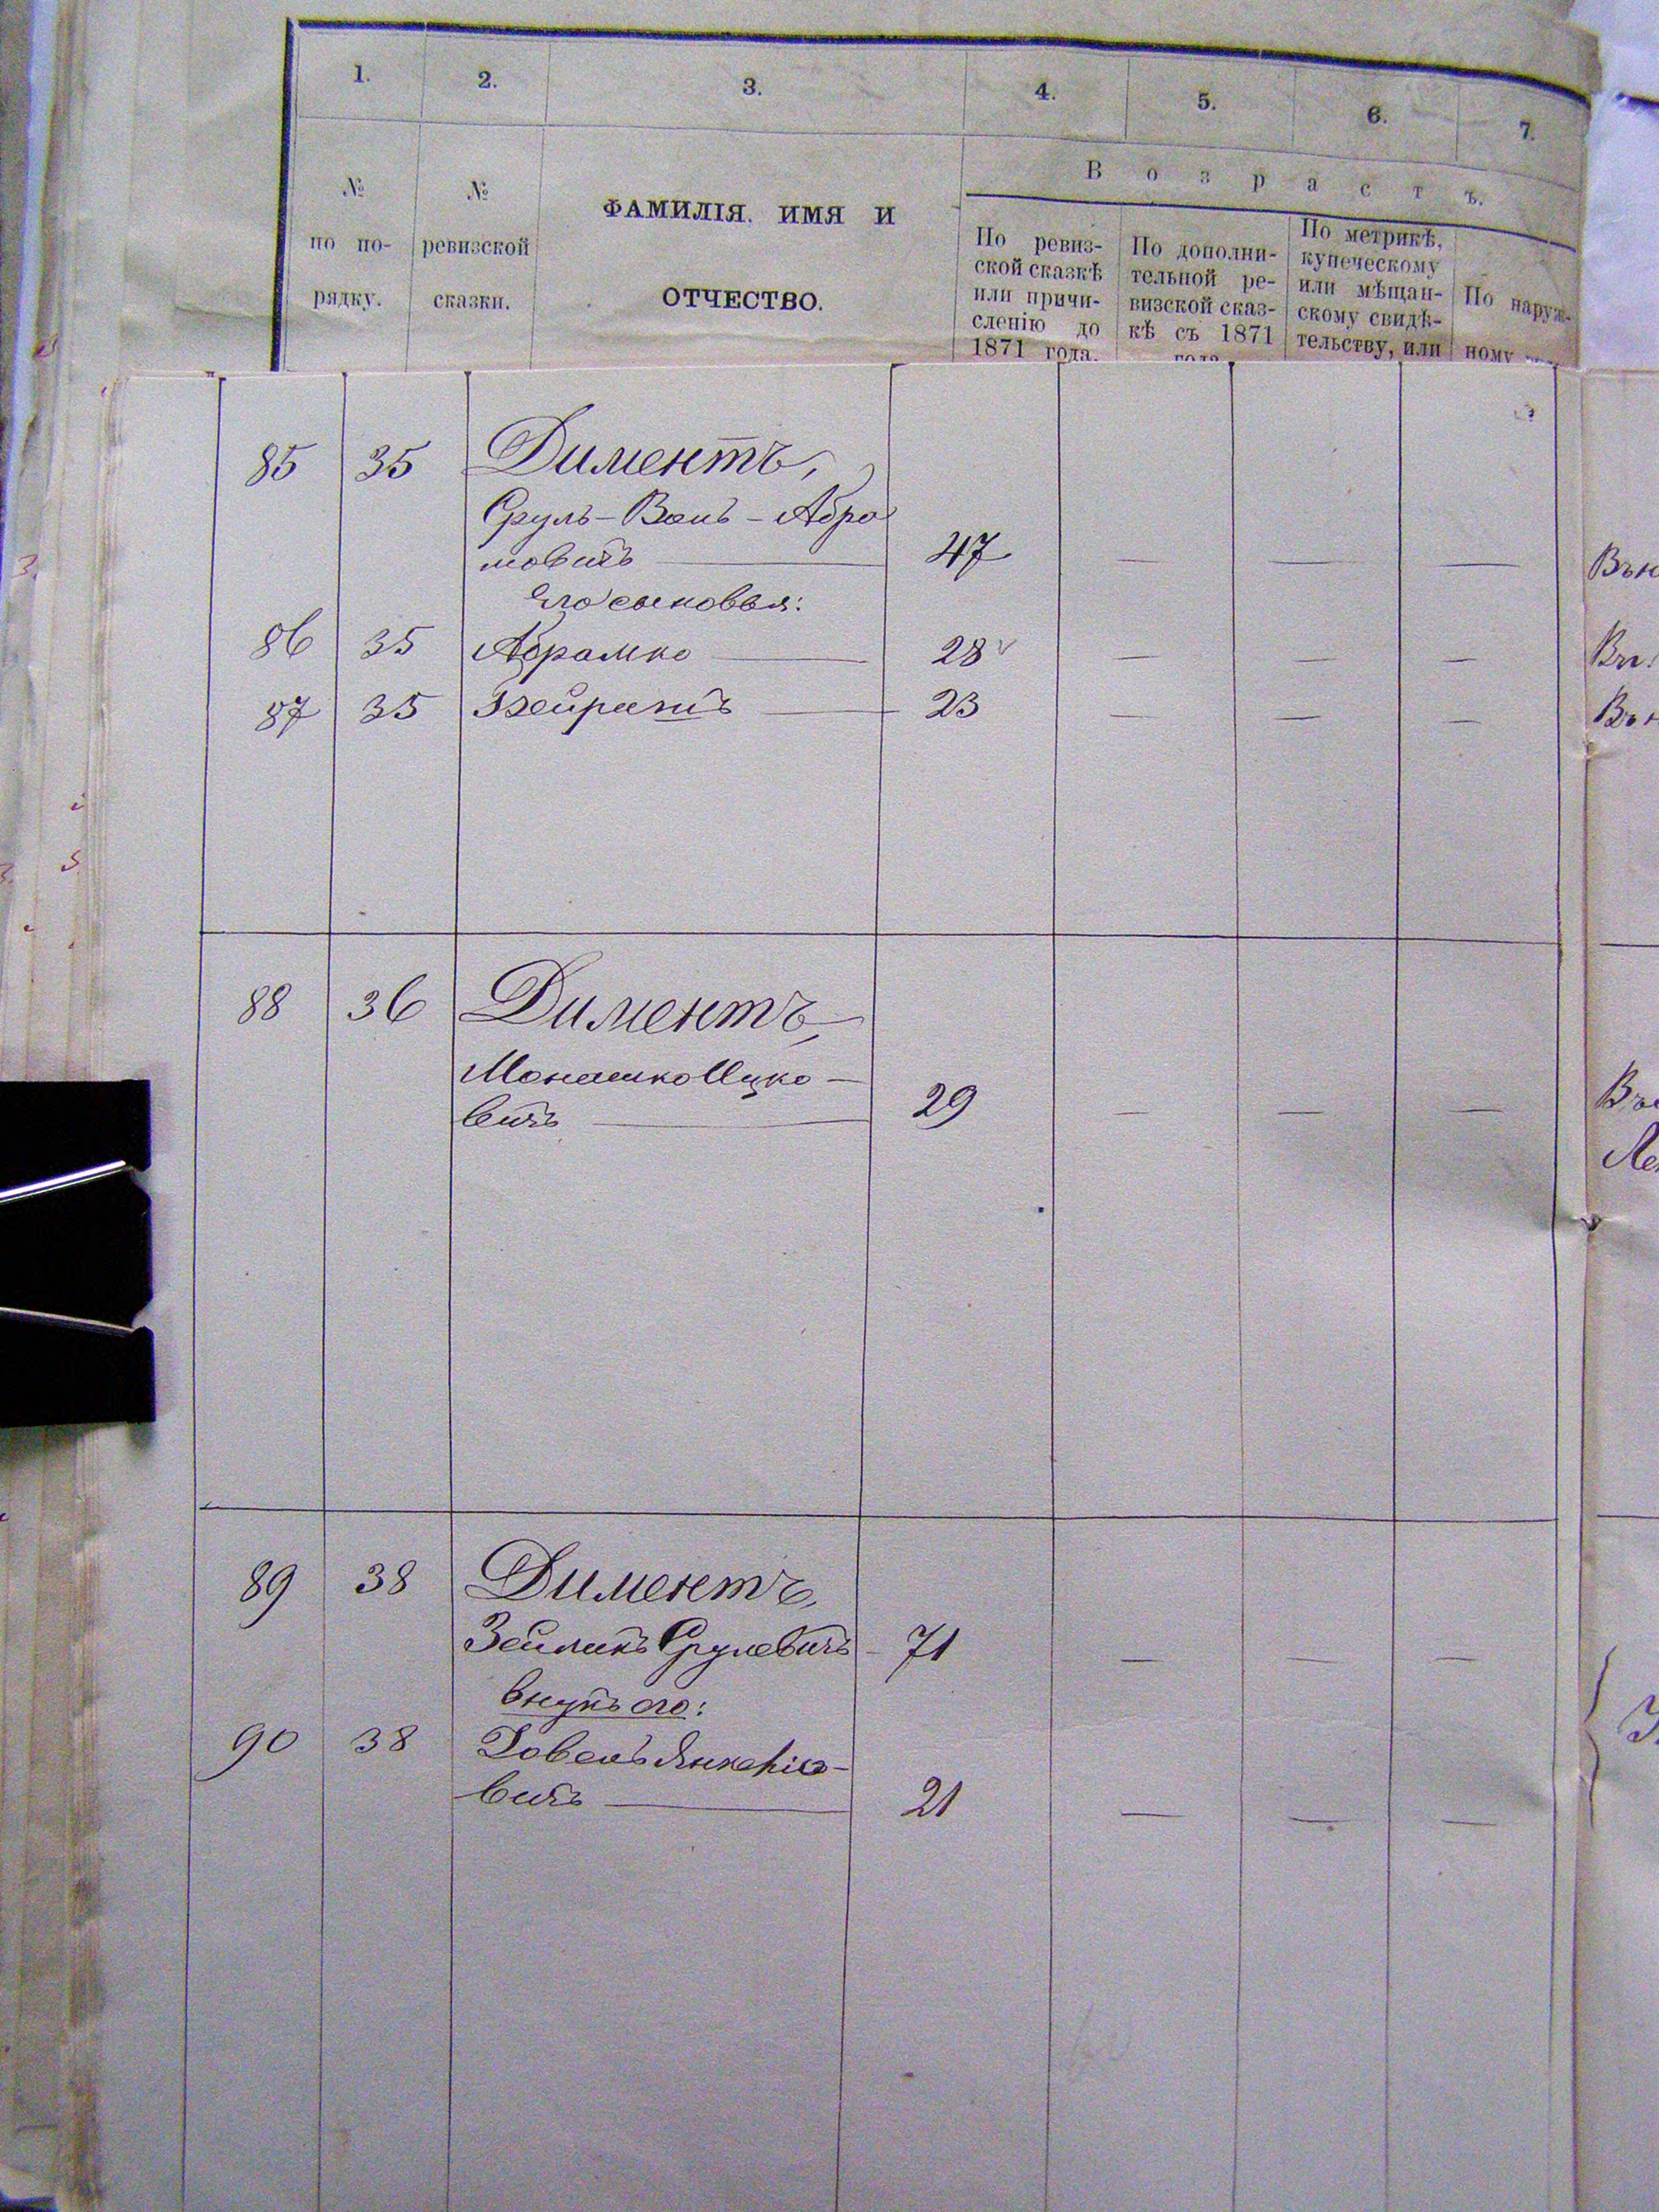 1. 2. 3. 4. 5. 6. 7.
№ по по- рядку.
№ ревизской сказки.
ФАМИЛІЯ, ИМЯ И
ОТЧЕСТВО.
Возрастъ.
По ревиз-
ской сказкѣ
или причи-
сленію до
1871 года.
По дополни-
тельной ре-
визской сказ-
кѣ съ 1871
года
По метрикѣ,
купеческому
или мѣщан-
скому свидѣ-
тельству, или
По наруж-
ному
85 35 Диментъ,
Сруль - - Абра
мовичъ 47 — — —
Его сыновья:
86 35 Абрамко 28 — — —
87 35 23 — — —
88 36 Диментъ,
Монашко Ицко-
вичъ 29 — — —
89 38 Диментъ,
Зеликъ Срулевичъ 71 — — —
внукъ его:
90 38 Довель Янкеліо-
вичъ 21 — — —